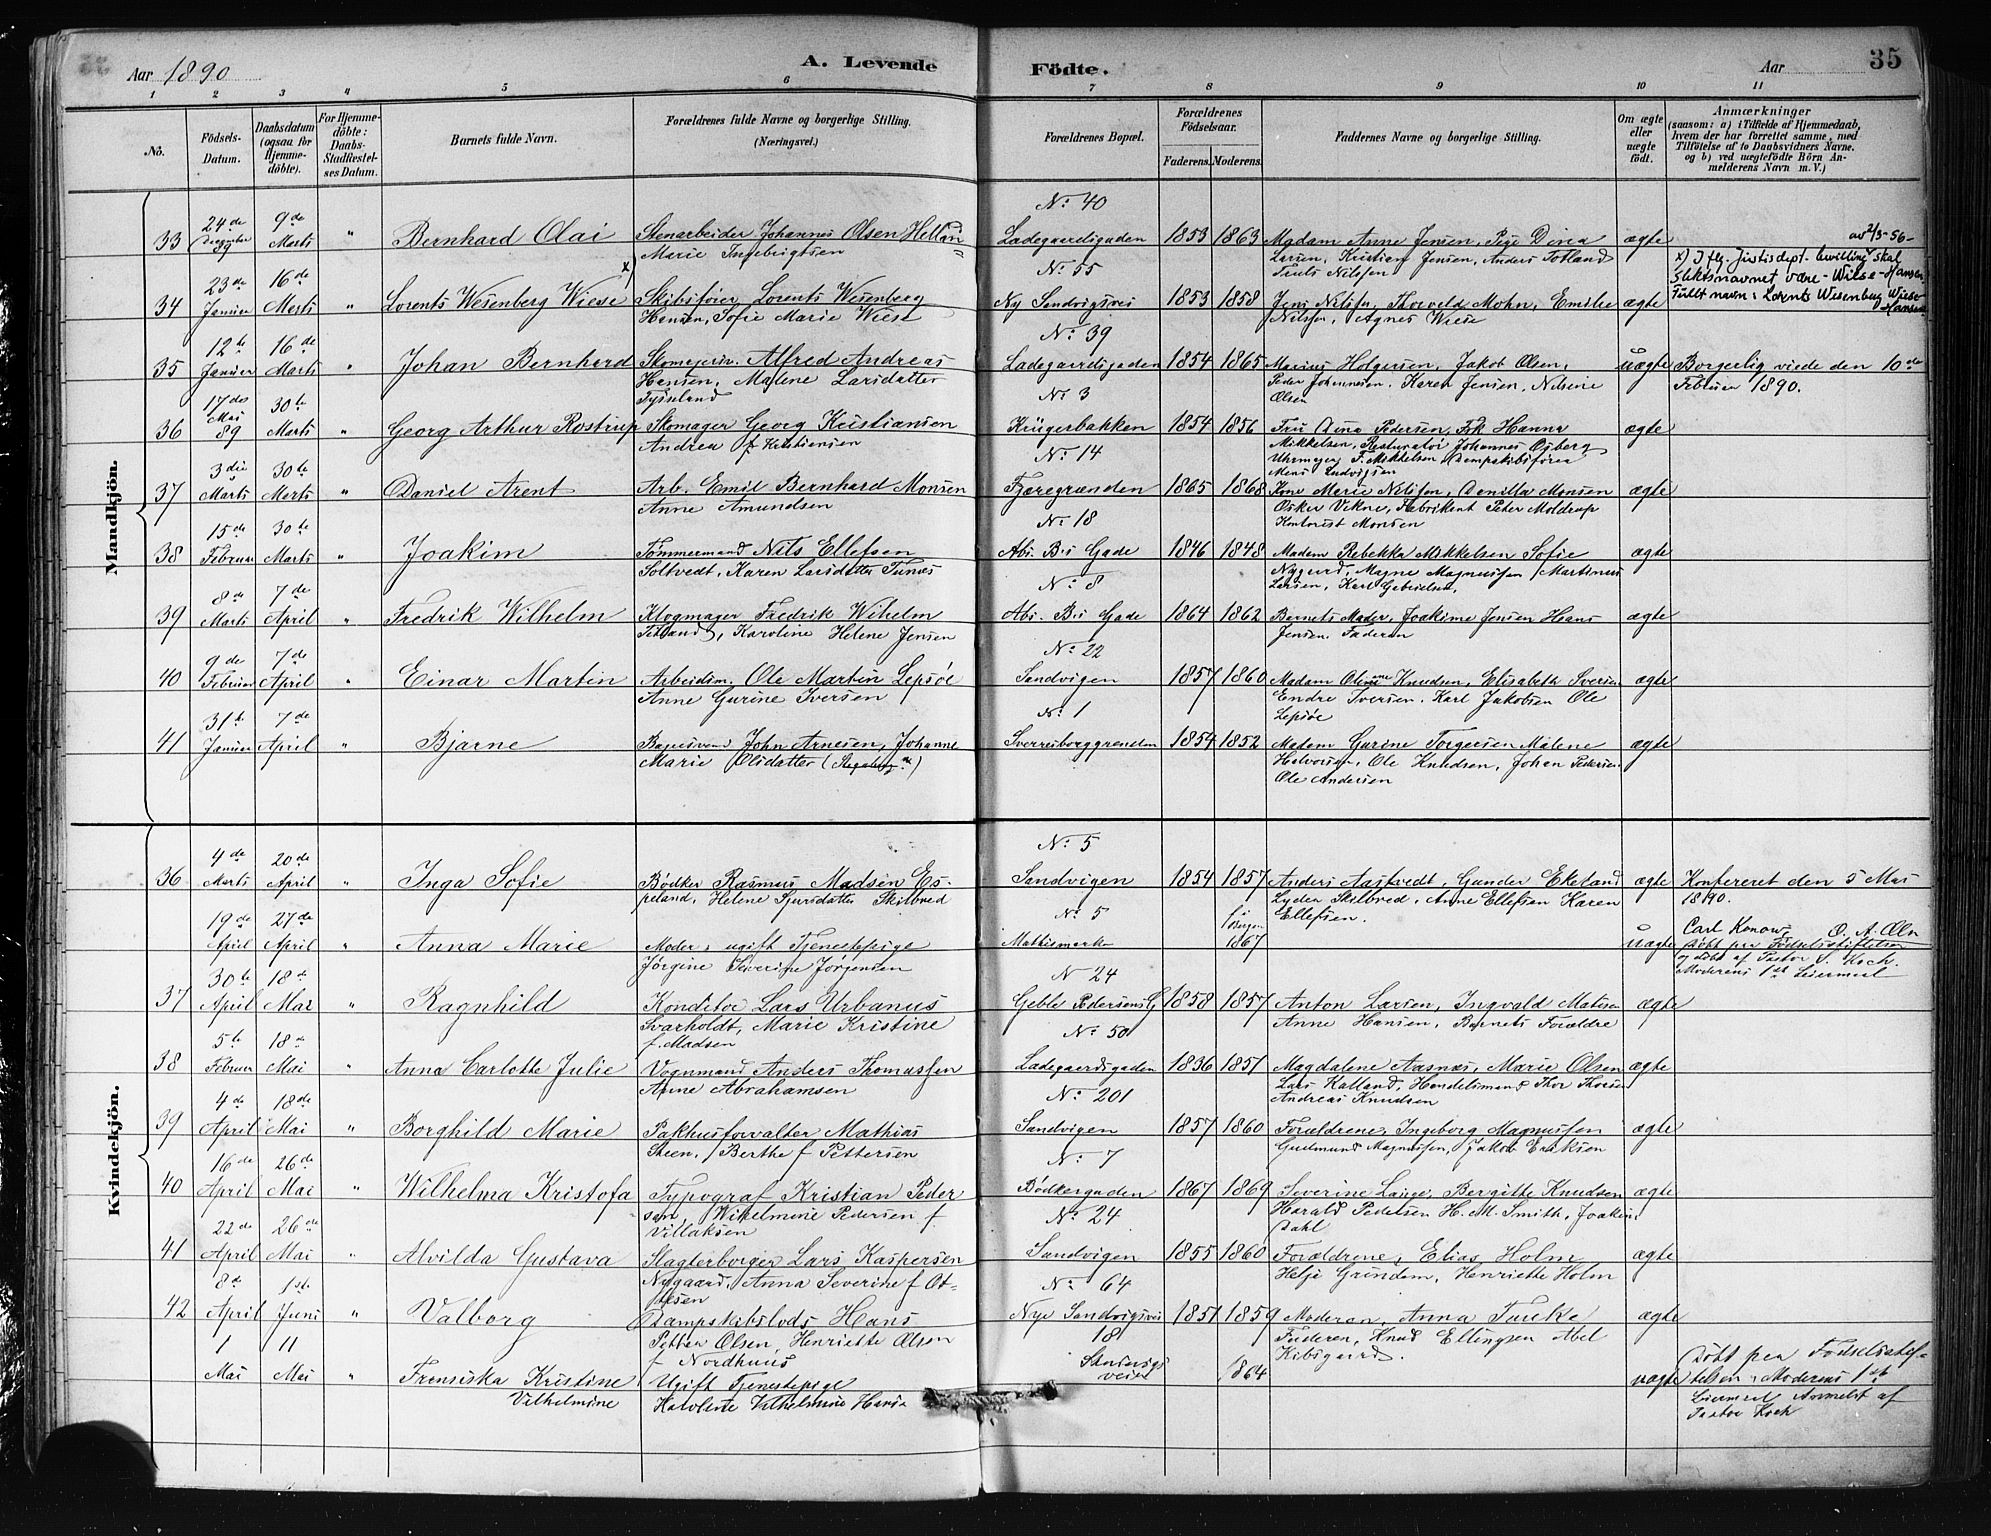 Aar 1890
A. Levende
Födte.
Aar
35
1 2 3 4 5 6 7 8 9 10 11
No.
Födsels-Datum.
Daabsdatum (ogsaa for Hjemme-döbte).
For Hjemme-döbte: Daabs-Stadfæstel-ses Datum.
Barnets fulde Navn.
Forældrenes fulde Navne og borgerlige Stilling. (Næringsvei.)
Forældrenes Bopæl.
Forældrenes Födselsaar.
Faderens. Moderens.
Faddernes Navne og borgerlige Stilling.
Om ægte eller uægte födt.
Anmærkninger
(saasom: a) i Tilfælde af Hjemmedaab,
hvem der har forrettet samme, med
Tilföielse af to Daabsvidners Navne.
og b) ved uægtefödte Börn An-
melderens Navn m. V.)
Mandkjön.
33 24de December 89 9de Marts " Bernhard Olai Stenarbeider Johannes Olsen Helland
Marie Ingebrigtsen
No 40 Ladegaardsgaden 1853 1863 Madam Anne Jensen, Pige Dina
Larsen, Kristian Jensen, Anders Totland
Truls Nilsen
ægte
34 23de Januar 16de Marts " Lorents Wesenberg Wiese x Skibsfører Lorents Wesenberg
Hansen, Sofie Marie Wiese
No 55 Ny Sandvigsvei 1853 1858 Jens Nilsen, Thorvald Mohn, Emilie
Nilsen, Agnes Wiese
ægte
av 2/3-56-
x) I flg. Justisdept. bevilling skal
slektsnavnet være - Wiese-Hansen.
Fullt navn: Lorents Wesenberg Wiese-
Hansen
35 12te Januar 16de Marts " Johan Bernhard Skomagersv. Alfred Andreas
Hansen, Malene Larsdatter
Tysseland
No 39 Ladegaardsgaden 1854 1865 Marius Holgersen, Jakob Olsen,
Peder Johannesen, Karen Jensen, Nilsine
Olsen
uægte Borgerlig viede den 10de
Februar 1890.
36 17des Mai 89 30te Marts " Georg Arthur Rostrup Skomager Georg Kristiansen
Andrea f Kristiansen
No 3 Krügerbakken 1854 1856 Fru Dina Pedersen, Frk Hanna
Mikkelsen, Restauratör Johannes
Uhrmager F. Mikkelsen, Dampskibsförer
Mons Ludvigsen
ægte
37 3die Marts 30te Marts " Daniel Arent Arb. Emil Bernhard Monsen
Anne Amundsen
No 14 Fjæregrænden 1865 1868 Kone Marie Nilsen, Monsen
Oskar Vikne, Fabrikant Peter Moldrup
Monsen
ægte
38 15de Februar 30te Marts " Joakim Tömmermand Nils Ellefsen
Soltvedt, Karen Larsdatter Tunæs
No 18 Abs. B.s Gade 1846 1848 Madam Rebekka Mikkelsen Sofie
Nygaard, Magne Magnussen, Martinus
Larsen, Karl Gabrielsen,
ægte
39 8de Marts 7de April " Fredrik Wilhelm Klogmager Fredrik Wihelm
Titland, Karoline Helene Jensen
No 8 Abs. B.s Gade 1864 1862 Barnets Moder, Joakime Jensen Hans
Jensen, Faderen
ægte
40 9de Februar 7de April " Einar Martin Arbeidsm. Ole Martin Lepsöe
Anne Gurine Iversen
No 22 Sandvigen 1857 1860 Madam Oline Knudsen, Elisabeth Iversen
Endre Iversen, Karl Jakobsen Ole
Lepsöe
ægte
41 31te Januar 7de April " Bjarne Bagersvend John Arnesen, Johanne
Marie Olsdatter
No 1 Sverresborggrenden 1854 1852 Madam Gurine Torgersen Malene
Halvorsen, Ole Knudsen, Johan Pedersen
Ole Andersen
ægte
Kvindekjön.
36 4de Marts 20de April " Inga Sofie Bödker Rasmus Madsen Es-
peland, Helene Sjursdatter Skilbred
No 5 Sandvigen 1854 1857 Anders Aastvedt, Gunder Ekeland
Lyder Skilbred, Anne Ellefsen Karen
Ellefsen.
ægte Konfereret den 5 Mai
1890.
19de April 27de April " Anna Marie Moder: ugift Tjenestepige
Jörgine Severine Jörgensen
No 5 Mattismark i Bergen 1867 uægte
Carl Konow, O. A. Oln
Født paa Födselsstiftelsen
og döbt af Pastor S. Koch.
Moderens 1ste Leiermaal
37 30te April 18de Mai " Ragnhild Konditor Lars Urbanus
Svarholdt, Marie Kristine
f. Madsen
N 24 Geble Pedersens G 1858 1857 Anton Larsen, Ingvald Matisen
Anne Hansen, Barnets Forældre
ægte
38 5te Februar 18de Mai " Anna Carlotte Julie Vognmand Anders Thomassen
Anne Abrahamsen
No 50 Ladegaardsgaden 1836 1851 Magdalene Aasnæs, Marie Olsen
Lars Kalland, Handelsmand Thor Thorsen
Andreas Knudsen
ægte
39 4de April 18de Mai " Borghild Marie Pakhusforvalter Mathias
Steen, Berthe f Pettersen
No 201 Sandvigen 1857 1860 Forældrene, Ingeborg Magnussen
Gudmund Magnussen, Jakob Eriksen
ægte
40 16de April 26de Mai " Wilhelma Kristofa Typograf Kristian Peder
sen, Wihelmine Pedersen f
Villaksen
No 7 Bödkergaden 1867 1869 Severine Lange, Bergitte Knudsen
Harald Pedersen H. M. Smith, Joakim
Dahl
ægte
41 22de April 26de Mai " Alvilda Gustava Slagterborger Lars Kaspersen
Nygaard, Anna Severine f Ot-
tesen
No 24 Sandvigen 1855 1860 Forældrene, Elias Holm
Helje Grindem, Henriette Holm
ægte
42 8de April 1ste Juni " Valborg Dampskibslods Hans
Petter Olsen, Henriette Olsen
f Nordhuus
No 64 Nye Sandvigsvei 1851 1859 Moderen, Anna Tanke
Faderen, Knud Ellingsen Abel
Kibsgaard.
ægte
1 Mai 11 Mai " Fransiska Kristine
Vilhelmine
Ugift Tjenestepige
Vilhelmine
18 Sandvigs
veien
1864 uægte
Född paa Födselsstif-
telsen, Moderens 1ste
Leiermaal Anmeldt af
Pastor Koch